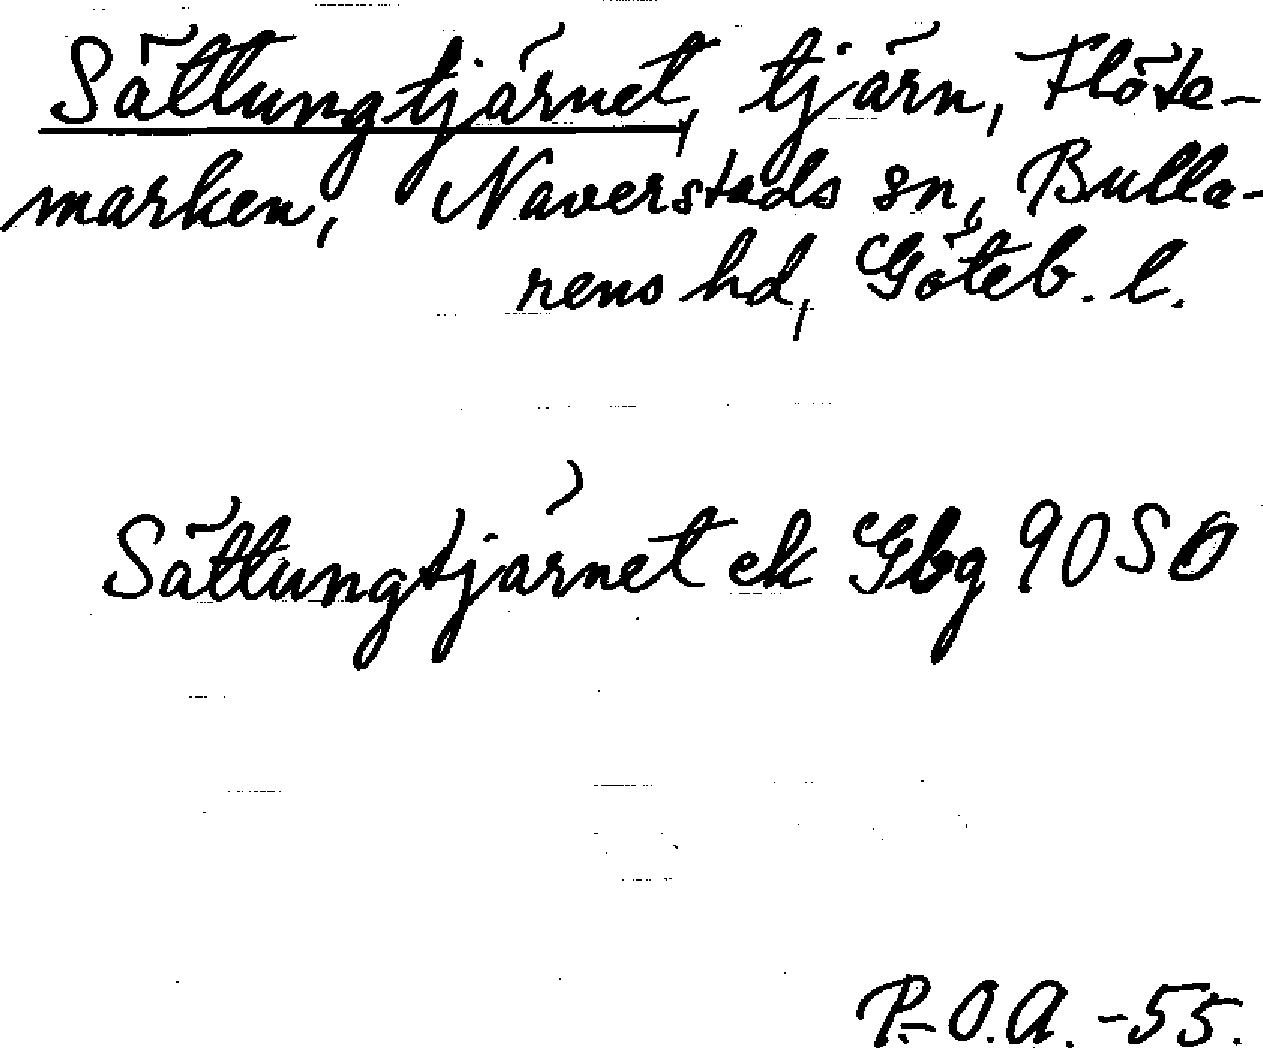 Sättungtjärnet, tjärn, Flöte-
marken, Naverstads sn, Bulla-
rens hd, Göteb. l.
Sättungtjärnet ek Gbg 90 SO
P.-O.A. -55.